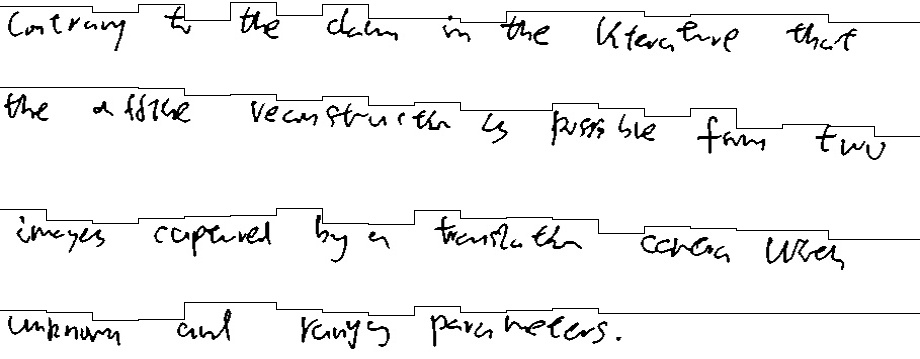 Contrary to the claim in the literature that
the affine reconstruction is possible from two
images captured by a translation camera when
unknown and varying parameters.